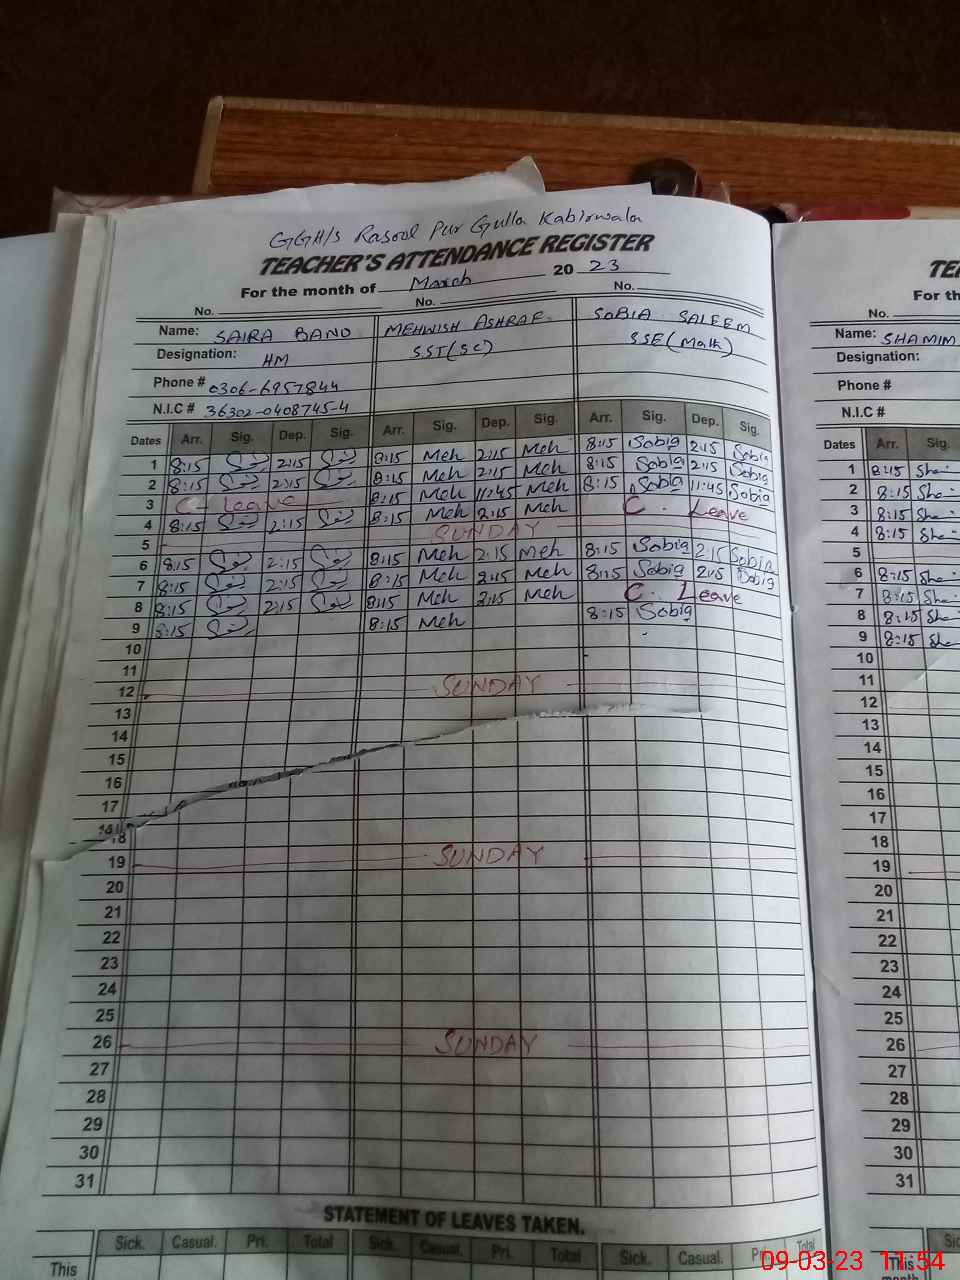 GGH/S Rasool Pur Gulla Kabirwala
TEACHER'S ATTENDANCE REGISTER
For the month of March 20 23
No. No. No.
Name: SAIRA BANO MEHWISH ASHRAF SOBIA SALEEM
Designation: HM SST(SC) SSE(Math)
Phone # 0306-6957844
N.I.C # 36302-0408745-4
Dates Arr. Sig. Dep. Sig. Arr. Sig. Dep. Sig. Arr. Sig. Dep. Sig.
1 8:15 2:15 8:15 Meh 2:15 Meh 8:15 Sobia 2:15 Sobia
2 8:15 2:15 8:15 Meh 2:15 Meh 8:15 Sobia 2:15 Sobia
3 C. Leave 8:15 Meh 11:45 Meh 8:15 Sobia 11:45 Sobia
4 8:15 2:15 8:15 Meh 2:15 Meh C. Leave
5 SUNDAY
6 8:15 2:15 8:15 Meh 2:15 Meh 8:15 Sobia 2:15 Sobia
7 8:15 2:15 8:15 Meh 2:15 Meh 8:15 Sobia 2:15 Sobia
8 8:15 2:15 8:15 Meh 2:15 Meh C. Leave
9 8:15 8:15 Meh 8:15 Sobia
10
11
12 SUNDAY
13
14
15
16
17
18
19 SUNDAY
20
21
22
23
24
25
26 SUNDAY
27
28
29
30
31
STATEMENT OF LEAVES TAKEN.
Sick. Casual. Pri. Total Sick. Casual. Pri. Total Sick. Casual. Pri. Total
This
For th
No.
Name: SHAMIM
Designation:
Phone #
N.I.C #
Dates Arr. Sig.
1 8:15
2 8:15
3 8:15
4 8:15
5
6 8:15
7 8:15
8 8:15
9 8:15
10
11
12
13
14
15
16
17
18
19
20
21
22
23
24
25
26
27
28
29
30
31
This
09-03-23 11:54